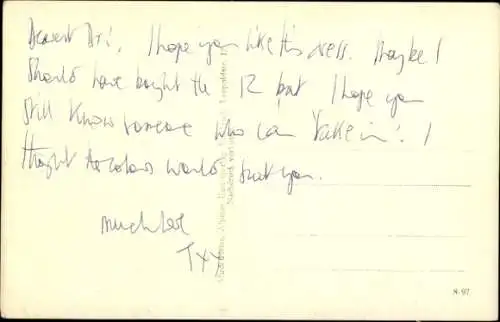 Dearest Di! I hope you like this dress. Maybe I
should have bought the 12 but I hope you
still know someone who can "take in"! I
thought the colours would suit you.
much love
T xx
N 97